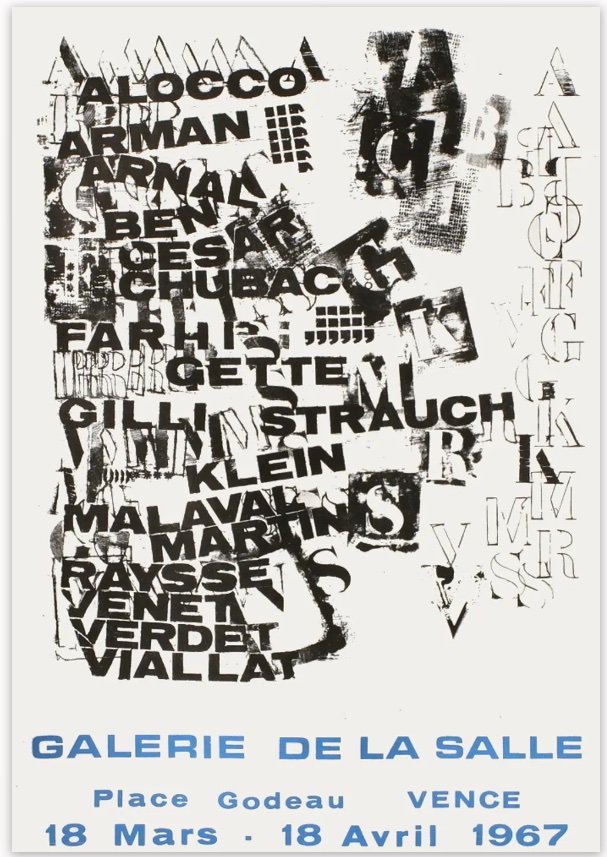 ALOCCO
ARMAN
ARNAL
BEN
CESAR
CHUBAC
FARHI
GETTE
GILLI STRAUCH
KLEIN
MALAVAL
MARTIN
RAYSSE
VENET
VERDET
VIALLAT
GALERIE DE LA SALLE
Place Godeau VENCE
18 Mars - 18 Avril 1967